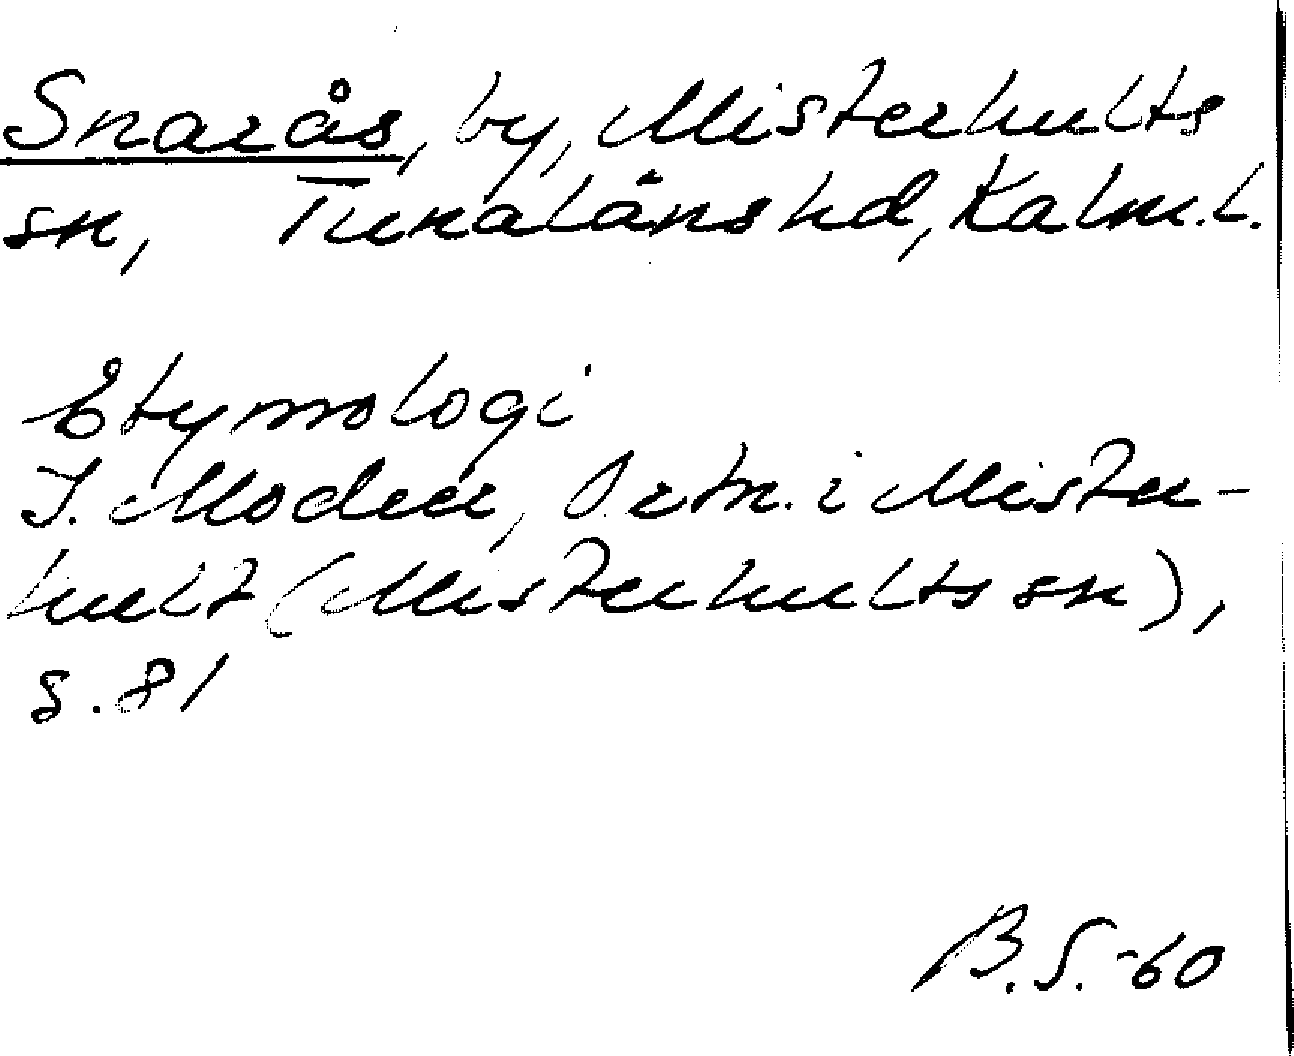 Snarås, by, Misterhults
sn, Tunalänshd, Kalm. l.
Etymologi
I. Modeer, Ortn. i Mister-
hult (Misterhults sn),
s. 81
B.S. -60